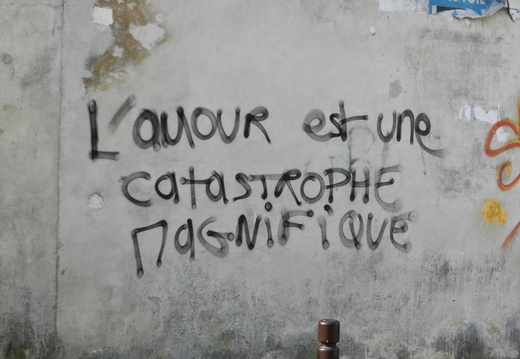 L'amour est une
catastrophe
magnifique